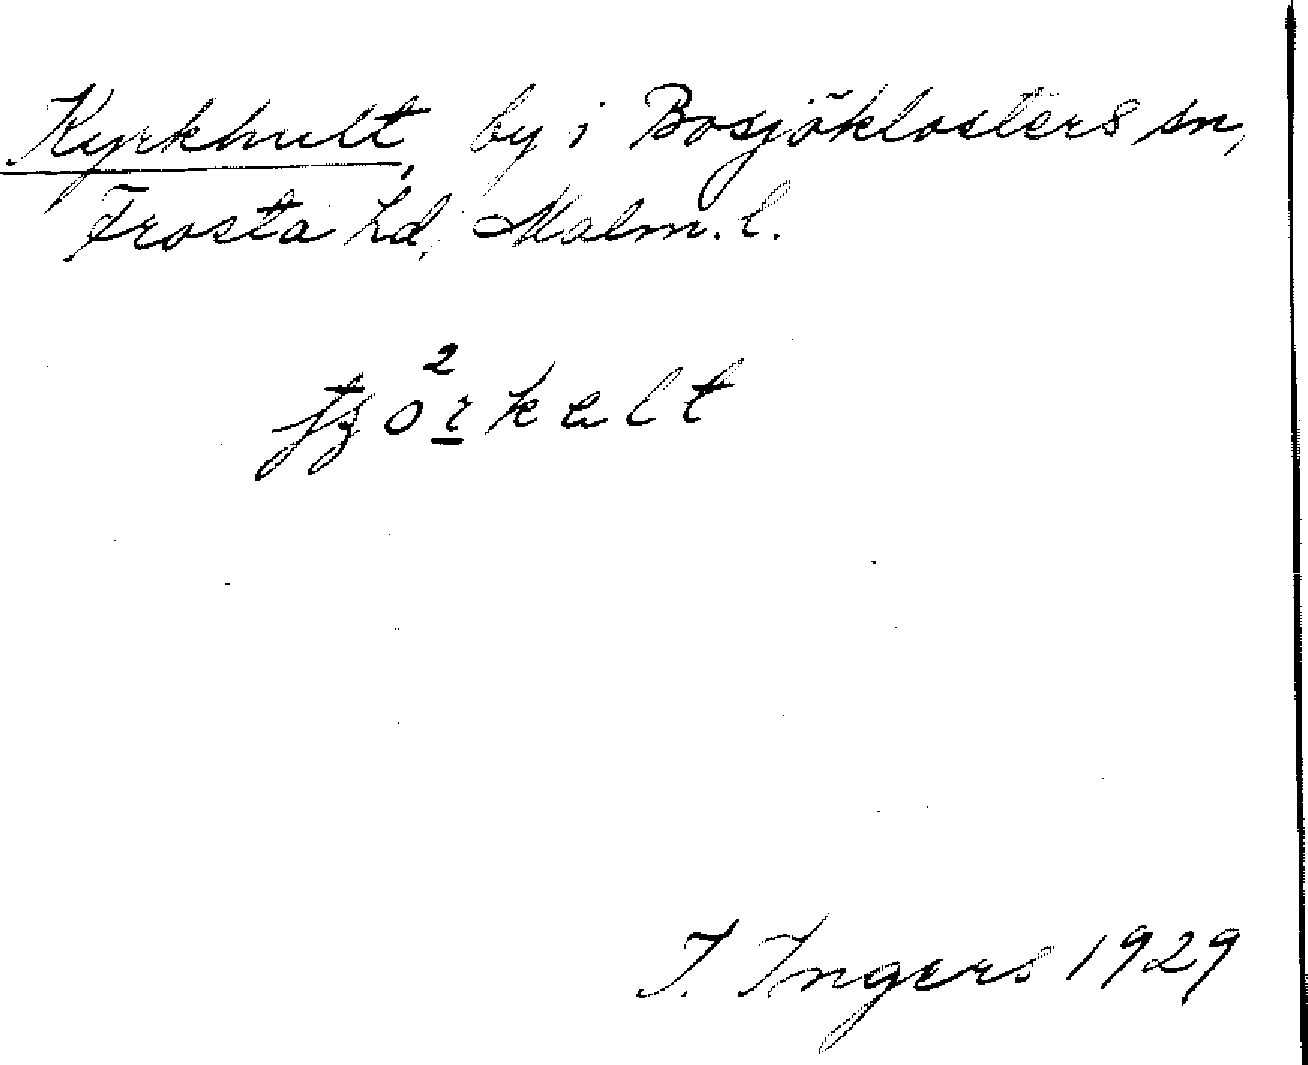 Kyrkhult, by i Bosjöklosters sn,
Frosta hd, Malm. l.
I. Ingers 1929